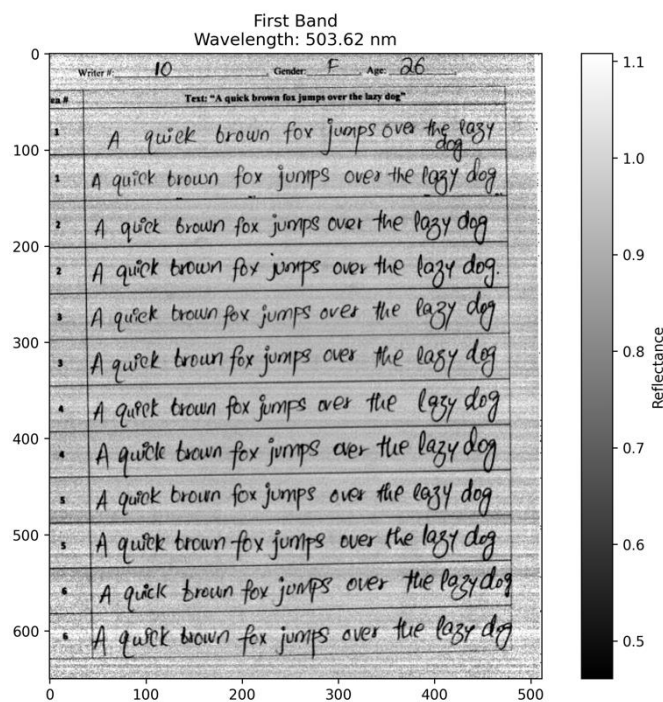 First Band
Wavelength: 503.62 nm
Writer #: 10 , Gender: F , Age: 26
Text: "A quick brown fox jumps over the lazy dog"
1 A quick brown fox jumps over the lazy
dog
1 A quick brown fox jumps over the lazy dog
2 A quick brown fox jumps over the lazy dog
2 A quick brown fox jumps over the lazy dog.
3 A quick brown fox jumps over the lazy dog
3 A quick brown fox jumps over the lazy dog
4 A quick brown fox jumps over the lazy dog
4 A quick brown fox jumps over the lazy dog
5 A quick brown fox jumps over the lazy dog
5 A quick brown fox jumps over the lazy dog
6 A quick brown fox jumps over the lazy dog
6 A quick brown fox jumps over the lazy dog
0
100
200
300
400
500
600
0 100 200 300 400 500
1.1
1.0
0.9
0.8
0.7
0.6
0.5
Reflectance